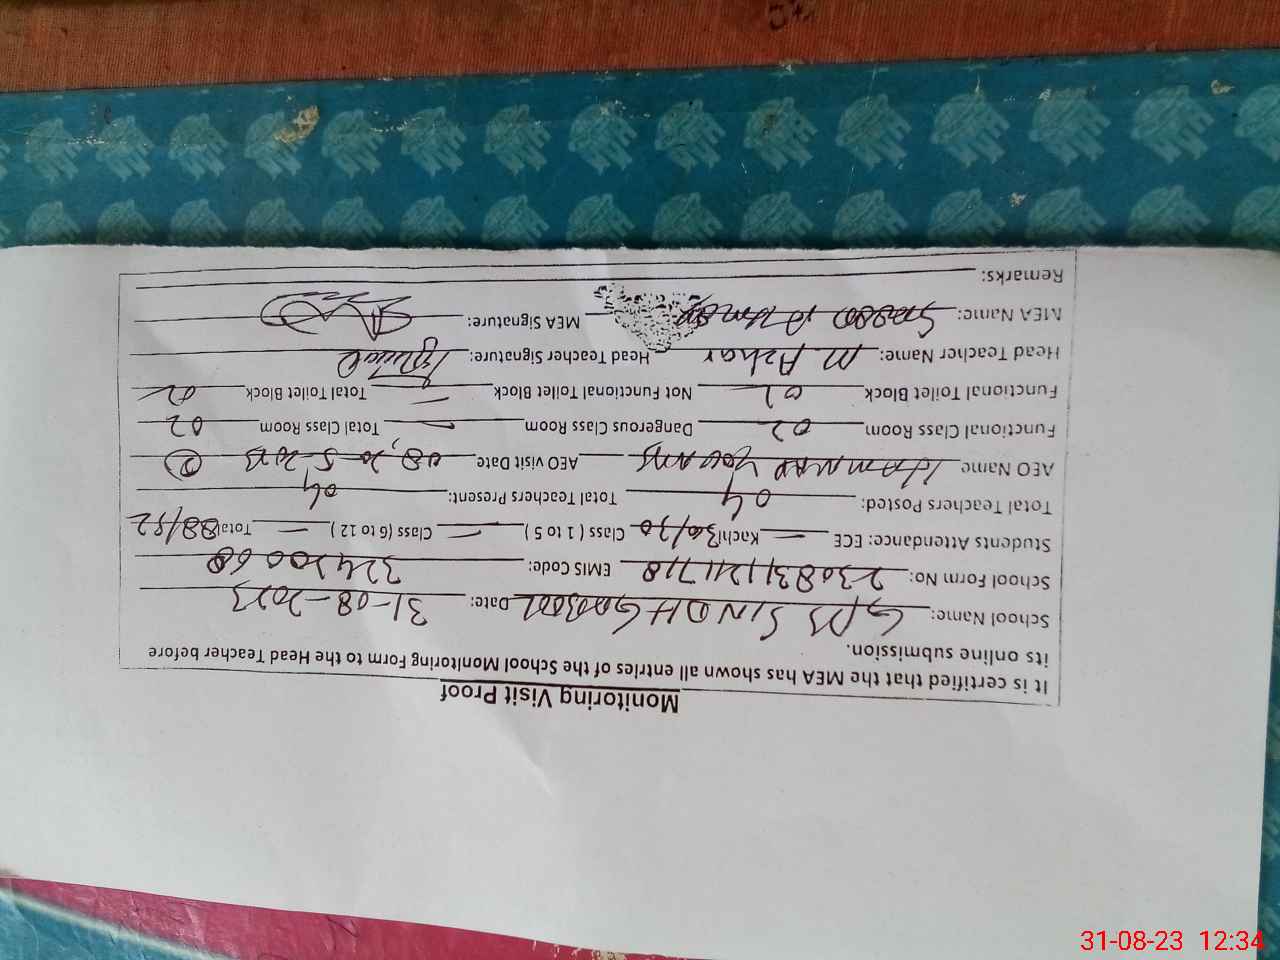 Monitoring Visit Proof
It is certified that the MEA has shown all entries of the School Monitoring Form to the Head Teacher before
its online submission.
School Name: GPS SINDH Date: 31-08-2023
School Form No: EMIS Code:
Students Attendance: ECE — Kachi 30/30 Class ( 1 to 5 ) — Class (6 to 12 ) — Total 88/52
Total Teachers Posted: 04 Total Teachers Present: 04
AEO Name AEO visit Date
Functional Class Room 02 Dangerous Class Room — Total Class Room 02
Functional Toilet Block 02 Not Functional Toilet Block — Total Toilet Block
Head Teacher Name: M Azhar Head Teacher Signature:
MEA Name: MEA Signature:
Remarks:
31-08-23 12:34